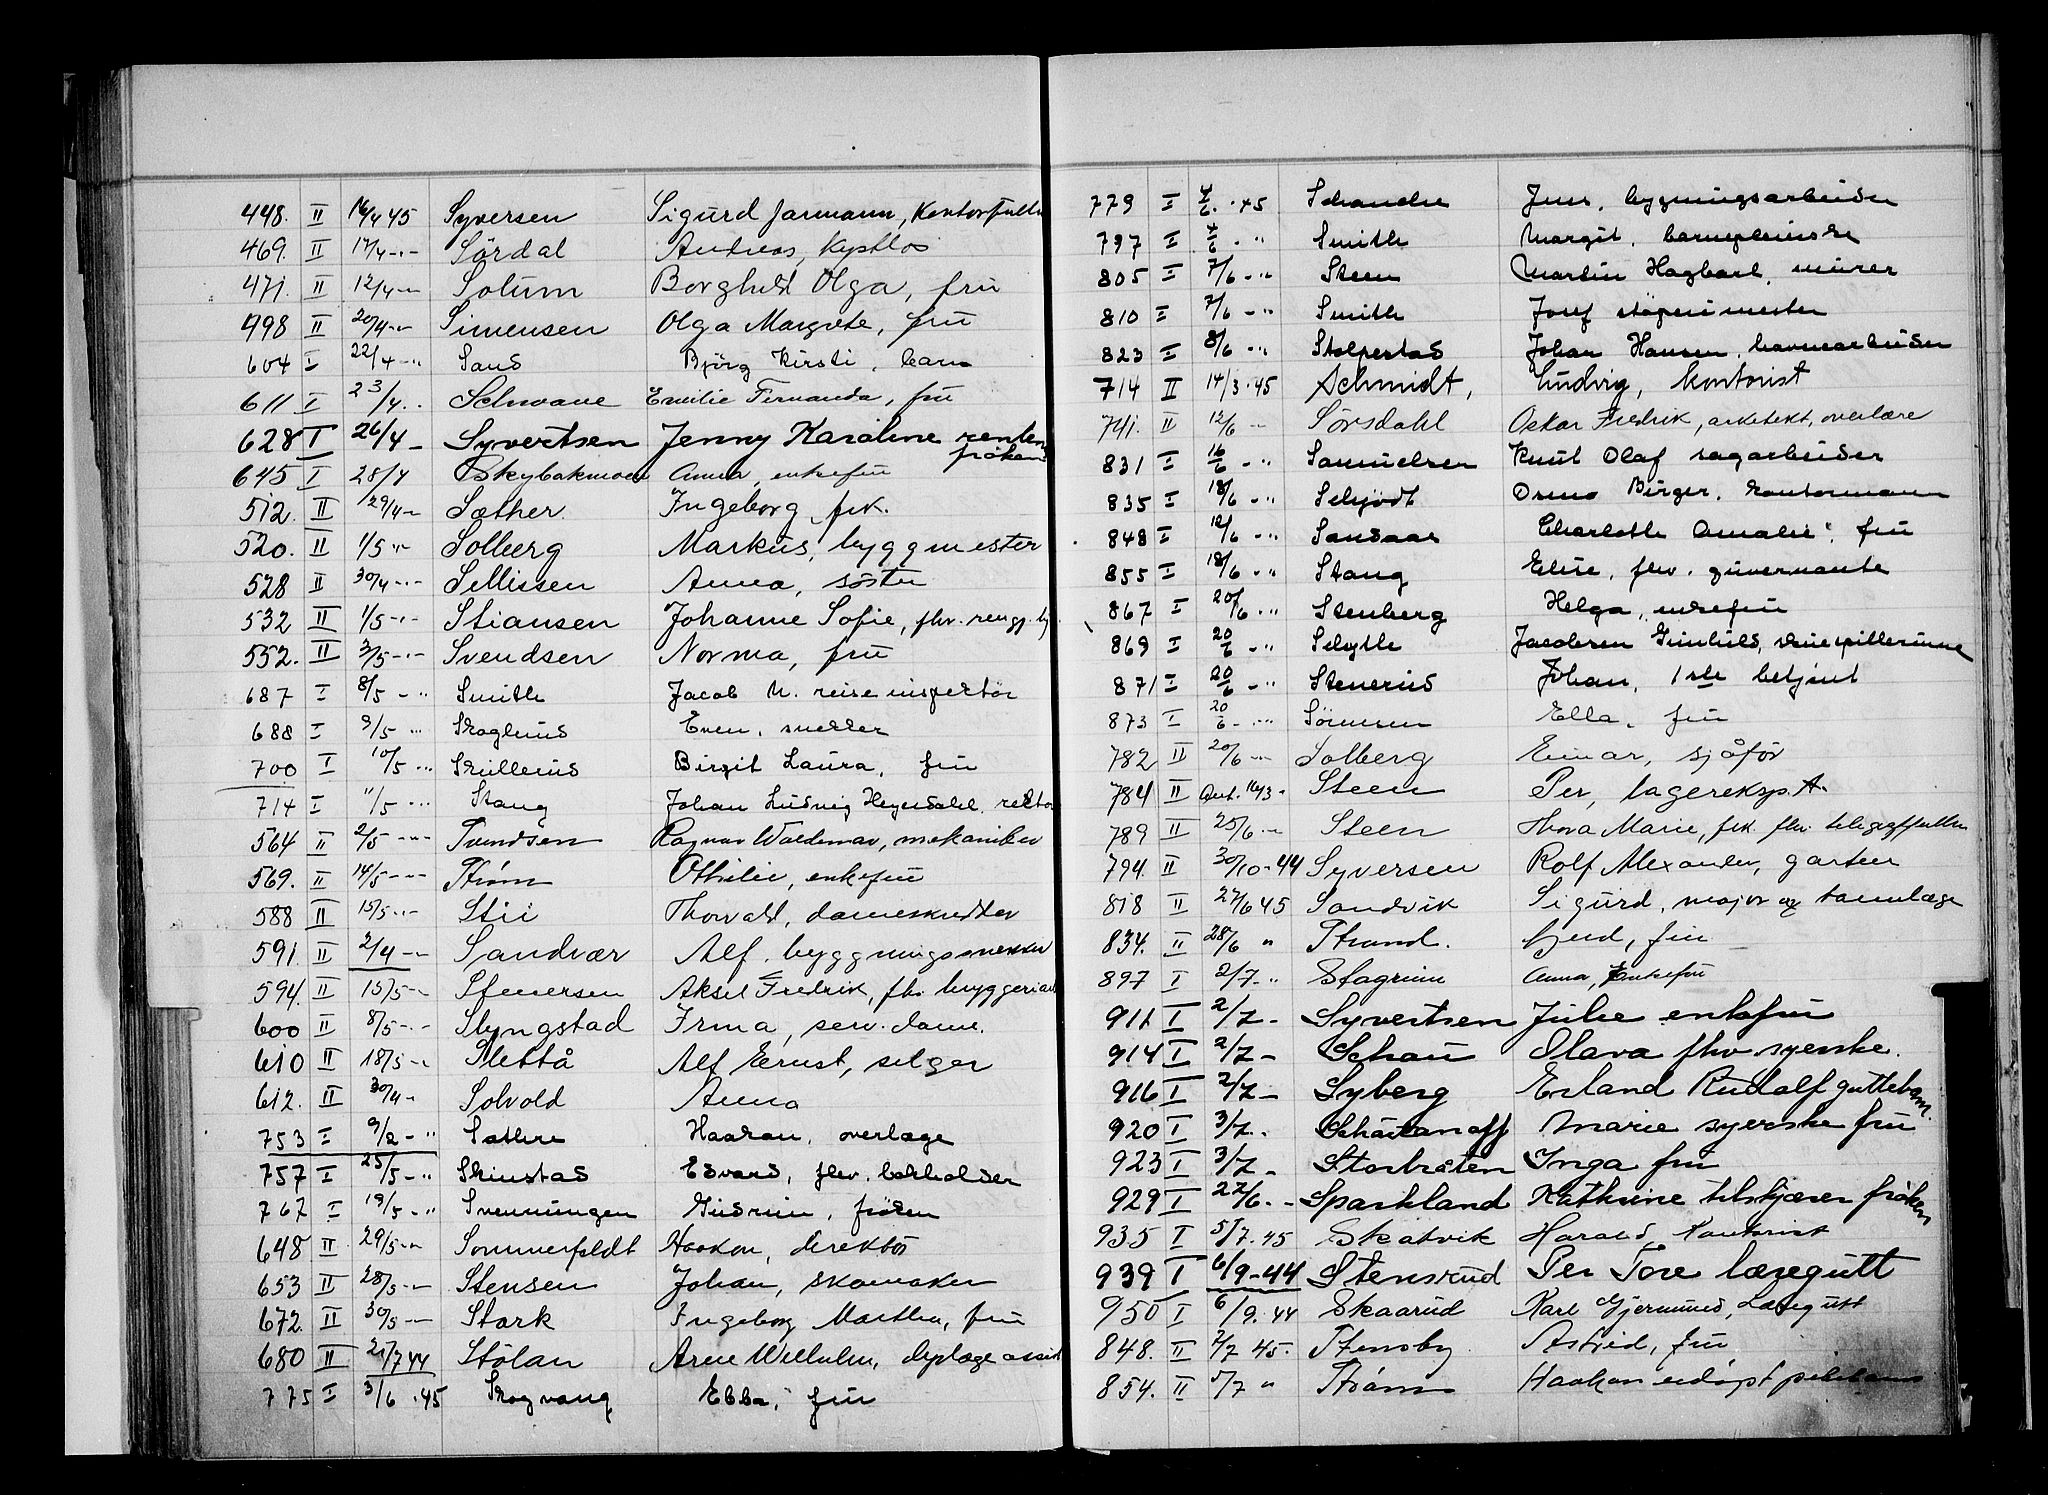 448. II 16/4 45 Syversen Sigurd Jarmann, Kontorfullm
469. II 17/4 -"- Sördal Andreas, kystlos
471. II 12/4 -"- Solum Borghild Olga, fru
498 II 20/4 -"- Simensen Olga Margrete, fru
604 I 22/4 -" Sand Björg Kirsti, barn
611 I 23/4 .. Schwane Emilie Fernanda, fru
628 I 26/4 - Syvertsen Jenny Karoline
frøken
645 I 28/4 Skybakmoen Anna, enkefru
512. II 29/4 - Sæther. Ingeborg, frk.
520. II 1/5 -"- Solberg Markus, byggmester
528 II 30/4 -"- Sellissen Anna, söster
532 II 1/5 -"- Stiansen Johanne Sofie, fhv. rengj.
552. II 3/5 -"- Svendsen Norma, fru
687 I 8/5 -" Smith Jacob M. reiseinspektör
688 I 9/5 -" Skoglund Even, snekker
700 I 10/5 -" Skullerud Birgit Laura, fru
714 I 11/5 -" Stang Johan Ludvig Heyerdahl. rektor
564 II 2/5 -"- Svendsen Ragnar Waldemar, mekaniker
569. II 14/5 -"- Strøm Othilie, enkefru
588 II 15/5 -"- Stii Thorvald, dameskredder
591. II 2/4 -"- Sandvær Alf, byggningssnekker
594. II 15/5 -"- Stenersen Aksel Fredrik, fhv. bryggeriarb
600 II 8/5 -"- Slyngstad Irma, serv. dame.
610 II 18/5 -"- Slettå Alf Ernst, selger
612. II 30/4 -"- Solvold Anna
753 I 9/2 -" Sathre Haakon, overlæge
757 I 25/5 -" Skinstad Edvard, flv. bokholder
767 I 19/5 -" Svenningen Gudrun, frøken
648 II 29/5 -"- Sommerfeldt Haakon, direktör
653 II 28/5 -"- Stensen Johan, skomaker
672. II 30/5 -"- Stork Ingeborg Marthea, fru
680 II 21/7 44 Stölan Arne Wilhelm, dyrlæge assist
775 I 3/6 .45 Skogvang Ebba, fru
779 I 4/6. .45 Schancke Jens, bygningsarbeider
797 I 4/6 -" Smith Margit, barnepleierske
805 I 7/6 -" Steen Martin Hagbart, murer
810 I 7/6 -" Smith Josef støperimester
823 I 8/6 -" Stolpestad Johan Hansen, havnearbeider
714 II 14/3.45 Schmidt, Ludvig, kontorist
741. II 12/6 -"- Sørsdahl Oskar Fredrik, arkitekt, overlærer
831 I 16/6 -" Samuelsen Knut Olaf sagarbeider
835 I 18/6 -" Schjødt Ormo Birger, kontormann
848 I 12/6 -" Sandaas Charlotte Amalie, fru
855 I 18/6 -" Stang Elise, flv. guvernante
867 I 20/6 -" Stenberg Helga, enkefru
869 I 20/6 -" Schytte Jacobsen Gunhild, skuespillerinne
871 I 20/6 -" Stenerud Johan, 1ste betjent
873 I 20/6 -" Sørensen Ella, fru
782 II 20/6 -"- Solberg Einar, sjåför
784 II Ant. 16/3 - Steen Per, lagereksp. A.
789 II 25/6 -"- Steen Thora Marie, frk. fhv. telegraffullm
794. II 30/10-44 Syversen Rolf Alexander, gartner
818 II 27/6 45 Sandvik Sigurd, major og tannlæge
834. II 28/6 " Strand. Gjerd, fru
897 I 2/7 -" Stagrim Anna, Enkefru
911 I 2/7 - Syvertsen Julie enkefru
914 I 2/7 - Schau Olava fhv syerske.
916 I 2/7 - Syberg Erland Rudolf guttebarn.
920 I 3/7.. Schaitanoff Marie syerske fru
923 I 3/7 - Storbråten Inga fru
929 I 22/6. - Sparkland Kathrine tilskjærer frøken
935 I 5/7.45 Skatvik Harald, Kontorist
939 I 6/9-44 Stensrud Per Tore læregutt
950 I 6/9.44 Skaarud Karl Gjermund, Læregutt
848. II 2/7 45- Stensby Astrid, fru
854. II 5/7 " Strøm Haakon